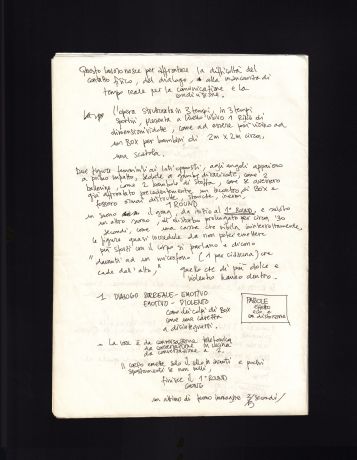 Questo lavoro nasce per affrontare la difficoltà del
contatto fisico, del dialogo, alla mancanza di
tempo reale per la comunicazione e la
condivisione.
l'opera strutturata in 3 tempi, in 3 tempi
sportivi, presenta a livello visivo 1 RING di
dimensioni ridotte, come ad essere più vicino ad
un BOX per bambini di 2m x 2m circa,
una scatola.
Due figure femminili ai lati opposti, agli angoli appaiono
a primo impatto, sedute a gambe divaricate, come 2
ballerine, come 2 bambole di stoffa, come se avessero
già affrontato precedentemente un incontro di Box e
fossero state distrutte, stanche, inermi.
1 ROUND
un suono il gong, dà inizio al 1° ROUND, e subito
un altro suono di disturbo prolungato per circa '30
secondi, come una carne che vibila, ininterrottamente,
le figure quasi incredule da non poter emettere
più sforzi con il corpo si parlano e dicono
"davanti ad un microfono (1 per ciascuna) che
cade dall'alto," quello che di più dolce e
violento hanno dentro.
1 DIALOGO SURREALE - EMOTIVO
EMOTIVO - VIOLENTO
come dei colpi di Box
come una carezza
a distruggersi.
PAROLE
effetto
eco e
un distorsione
- La voce è da conversazione telefonica
da conversazione in cucina
da conversazione a 2.
Il corpo emette solo il alto in avanti e pochi
spostamenti se non nulli,
finisce il 1° ROUND
GONG
un attimo di fermo immagine 3/secondi/